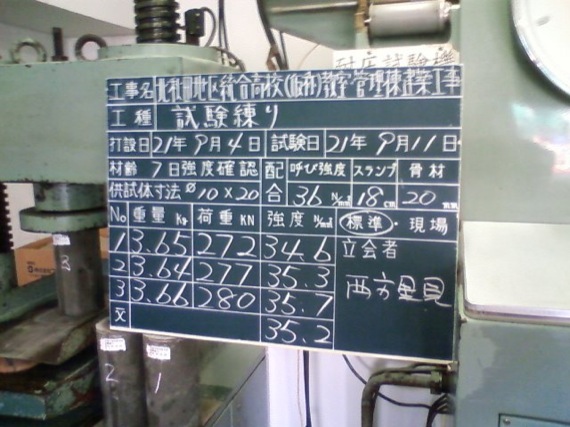 耐圧試験機
工事名 地区総合高校(仮称)教室・管理棟建築工事
工種 試験練り
打設日 21年9月4日 試験日 21年9月11日
材齢 7日強度確認 配合 呼び強度 スランプ 骨材
供試体寸法 φ10×20 36 N/mm² 18cm 20mm
No 重量 Kg 荷重 KN 強度 N/mm² 標準・現場
1 3.65 272 34.6 立会者
2 3.64 277 35.3
3 3.66 280 35.7
x̄ 35.2
3
2 1